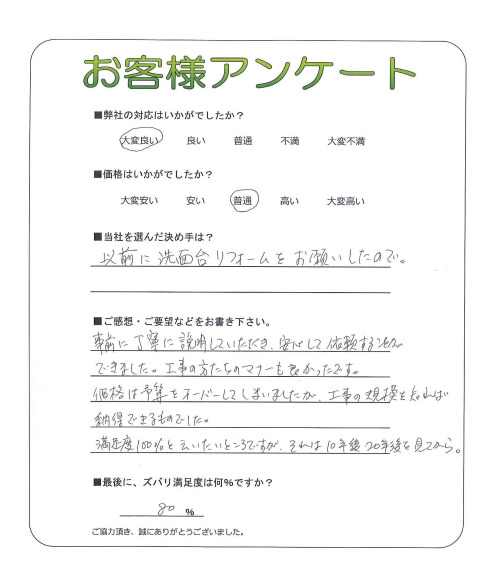 お客様アンケート
■弊社の対応はいかがでしたか?
大変良い 良い 普通 不満 大変不満
■価格はいかがでしたか?
大変安い 安い 普通 高い 大変高い
■当社を選んだ決め手は?
以前に洗面台リフォームをお願いしたので。
■ご感想・ご要望などをお書き下さい。
事前に丁寧に説明していただき、安心して依頼することが
できました。工事の方たちのマナーも良かったです。
価格は予算をオーバーしてしまいましたが、工事の規模を知れば
納得できるものでした。
満足度100%と云いたいところですが、それは10年後20年後を見てから。
■最後に、ズバリ満足度は何%ですか?
80 %
ご協力頂き、誠にありがとうございました。